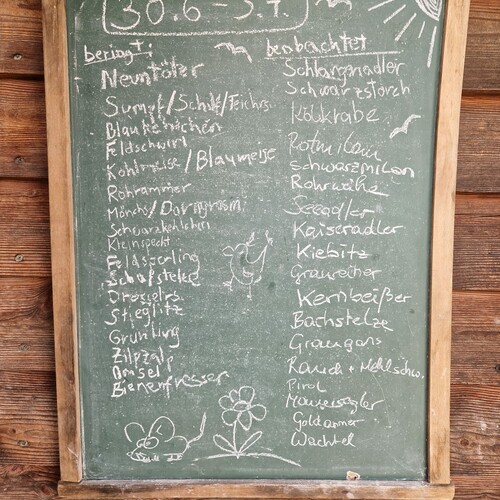 30.6-5.7.
beringt:
Neuntöter
Sumpf/Schilf/Teichrs.
Blaukehlchen
Feldschwirl
Kohlmeise/Blaumeise
Rohrammer
Mönchs/Dorngrasm.
Schwarzkehlchen
Kleinspecht
Feldsperling
Schafstelze
Drosselrs.
Stieglitz
Grünling
Zilpzalp
Amsel
Bienenfresser
beobachtet
Schlangenadler
Schwarzstorch
Kolkrabe
Rotmilan
Schwarzmilan
Rohrweihe
Seeadler
Kaiseradler
Kiebitz
Graureiher
Kernbeißer
Bachstelze
Graugans
Rauch + Mehlschw.
Pirol
Mauersegler
Goldammer
Wachtel